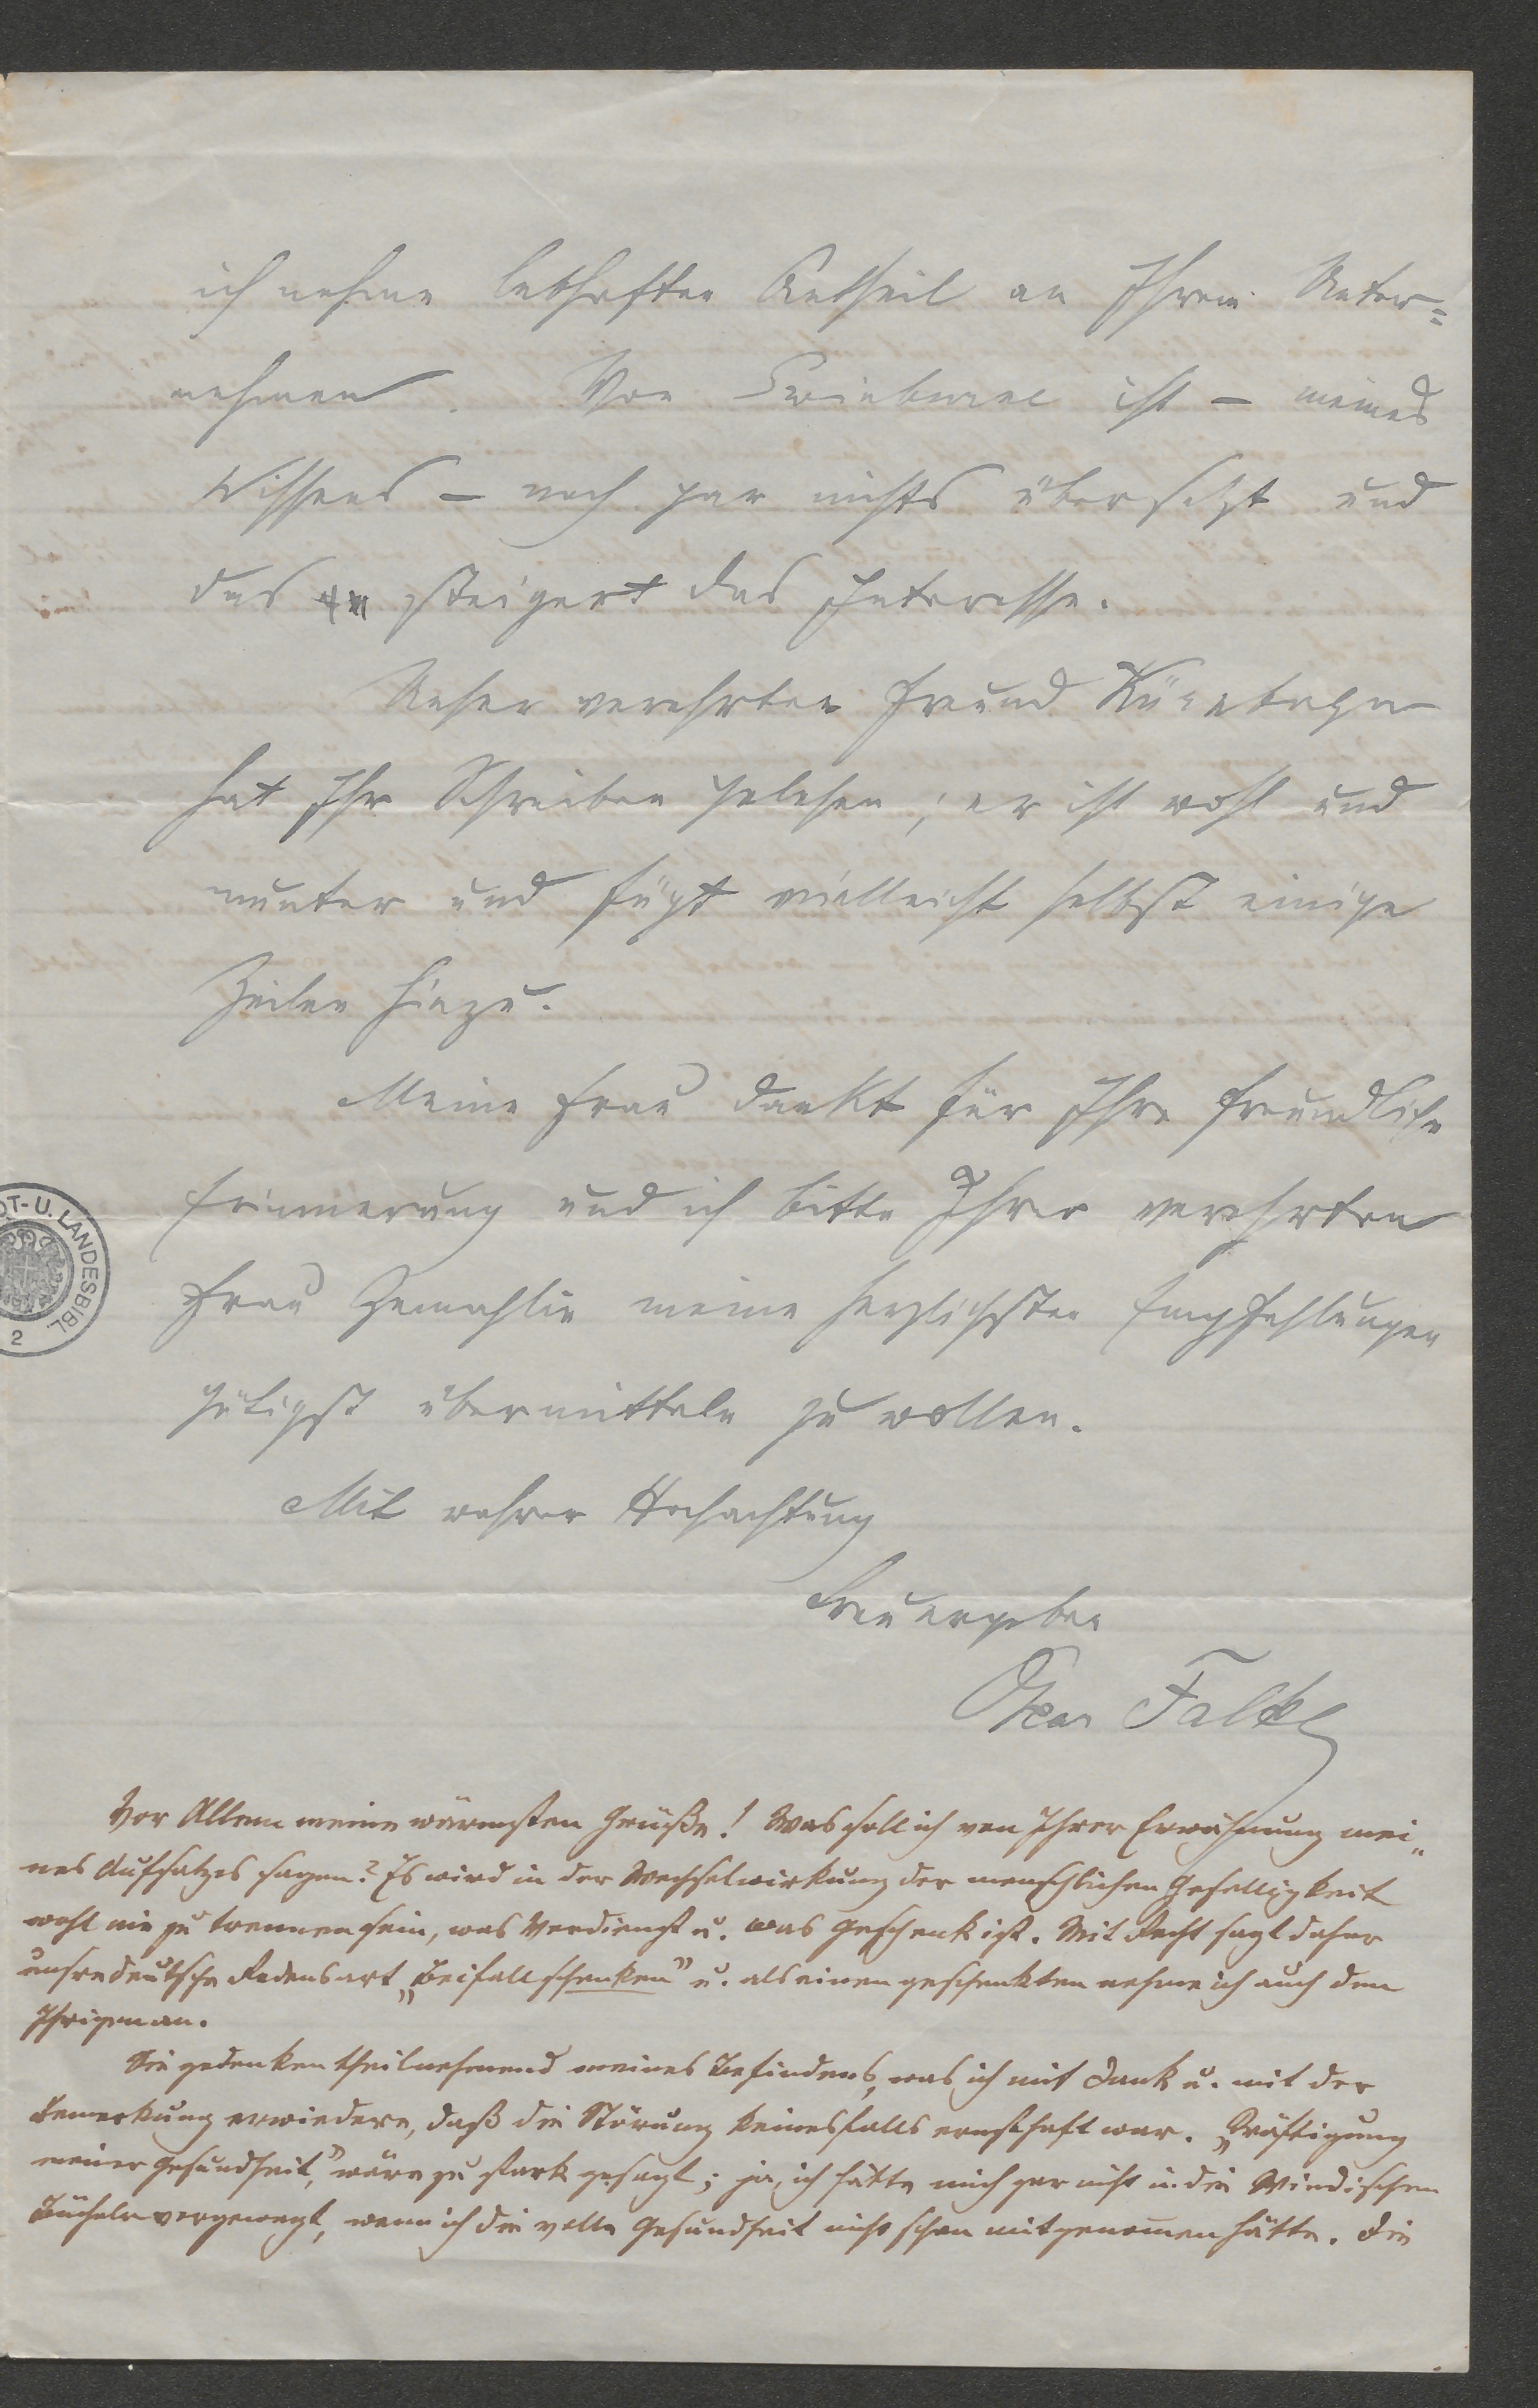 ich nehme lebhaften Antheil an Ihrem Unter=
nehmen. Von Swinburne ist – meines
Wissens – noch gar nichts übersetzt und
das steigert das Interesse.
Unser verehrter Freund Kürnberger
hat Ihr Schreiben gelesen; er ist wohl und
munter und fügt vielleicht selbst einige
Zeilen hinzu.
Meine Frau dankt für Ihre freundliche
Erinnerung und ich bitte Ihrer verehrten
Frau Gemahlin meine herzlichsten Empfehlungen
gütigst übermitteln zu wollen.
Mit wahrer Hochachtung
treuergeben
Oscar Falke
DT-U. LANDESBIBL.
2
Vor Allem meine wärmsten Grüße! Was soll ich von Ihrer Erwähnung mei„
nes Aufsatzes sagen? Es wird in der Wechselwirkung der menschlichen Geselligkeit
wohl nie zu trennen sein, was Verdienst u. was Geschenk ist. Mit Recht sagt daher
unsre deutsche Redensart „Beifall schenken" u. als einen geschenkten nehme ich auch den
Ihrigen an.
Sie gedenken theilnehmend meines Befindens, was ich mit Dank u. mit der
Bemerkung erwiedere, daß die Störung keinesfalls ernsthaft war. „Kräftigung
meiner Gesundheit," wäre zu stark gesagt; ja, ich hätte mich gar nicht in die Windischen
Bücheln vorgewagt, wenn ich die volle Gesundheit nicht schon mitgenommen hätte. Die